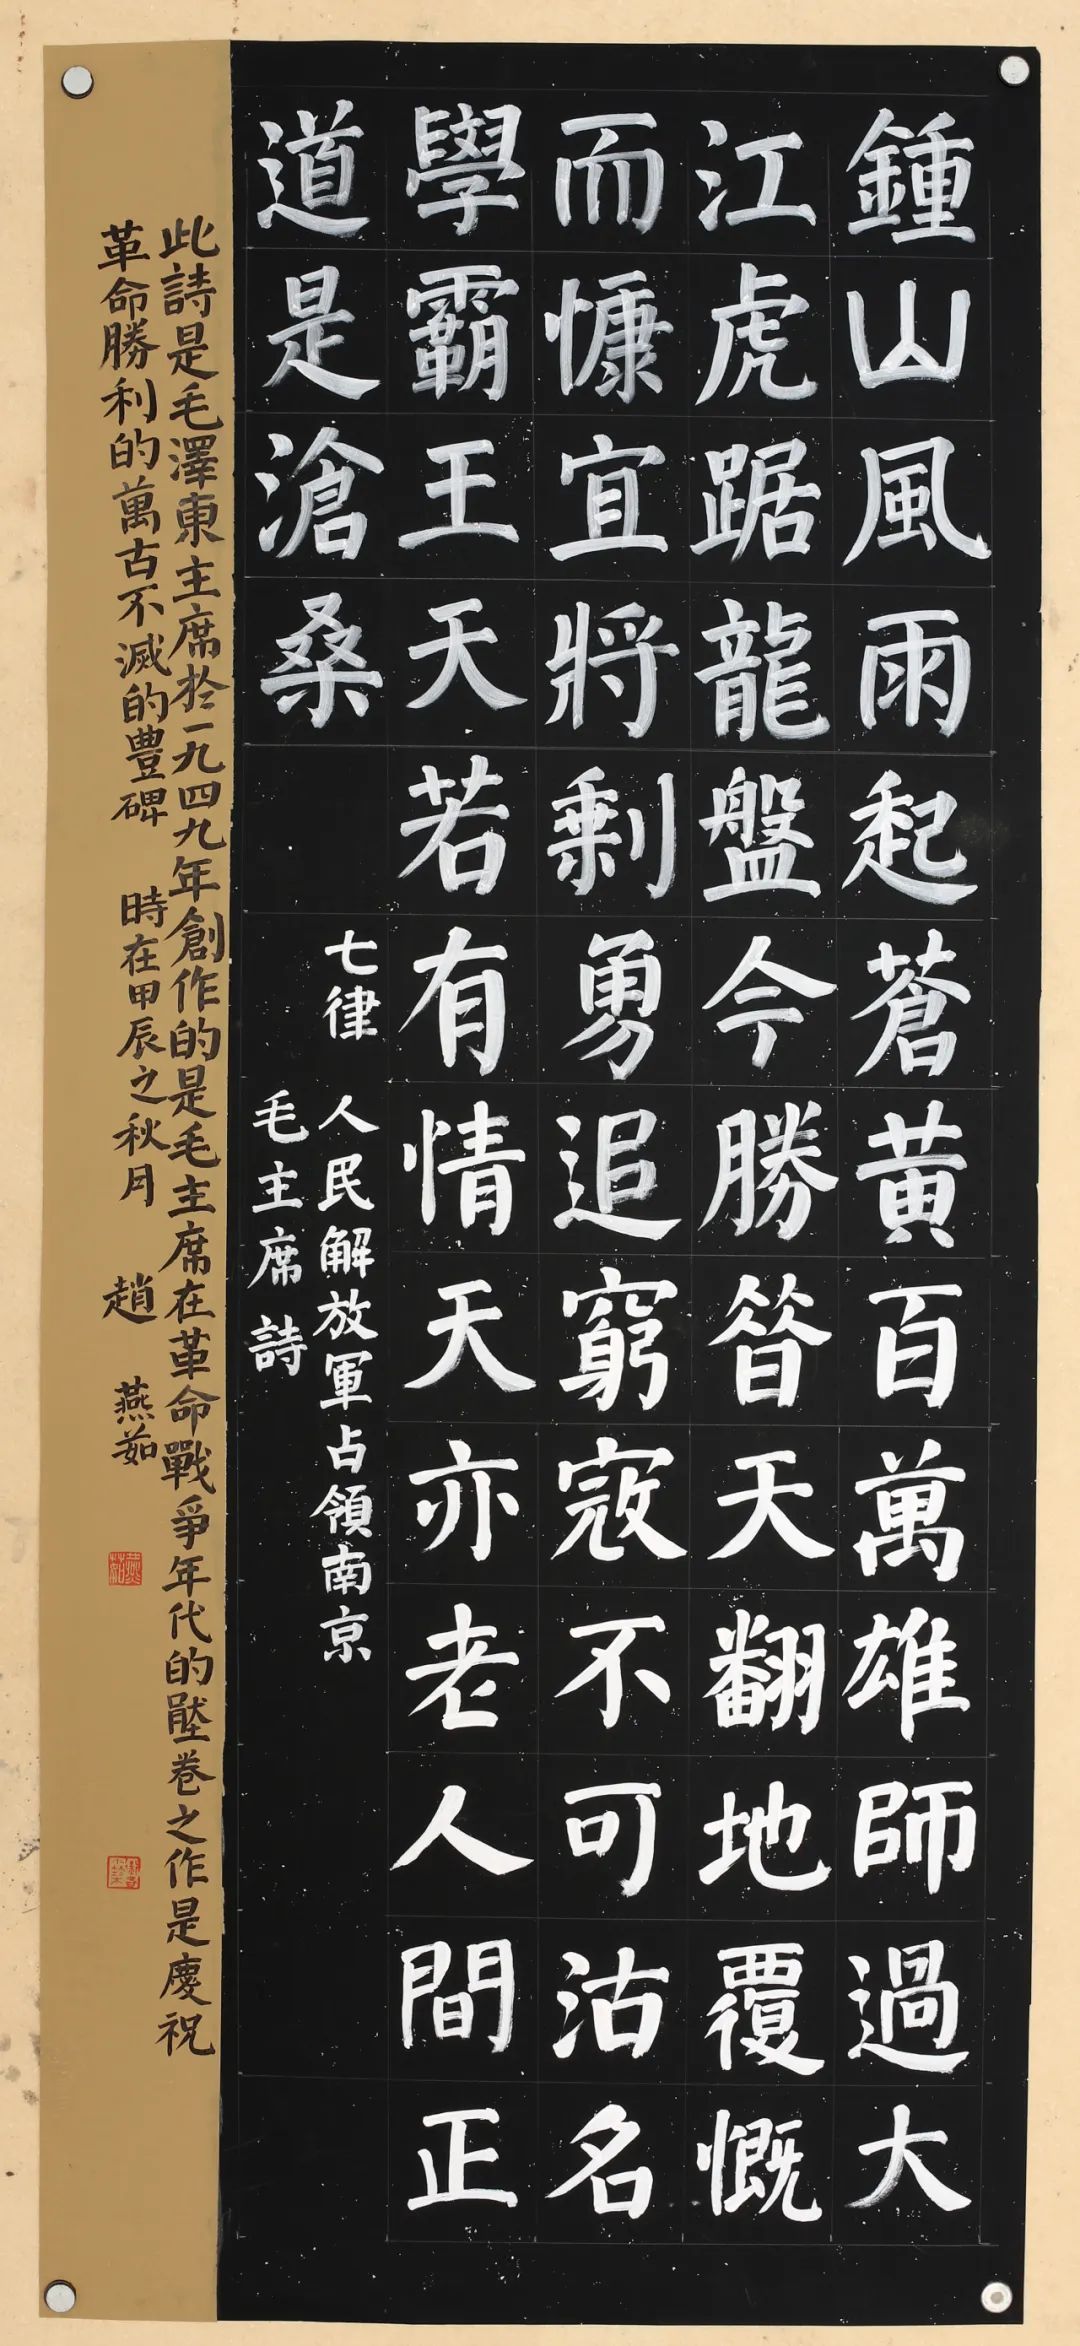 鍾山風雨起蒼黄百萬雄師過大
江虎踞龍盤今勝昝天翻地覆慨
而慷宜將剩勇追窮寇不可沽名
學霸王天若有情天亦老人間正
道是滄桑
七律 人民解放軍占領南京
毛主席詩
此詩是毛澤東主席於一九四九年創作的是毛主席在革命戰爭年代的壓卷之作是慶祝
革命勝利的萬古不滅的豐碑 時在甲辰之秋月 趙 燕茹
燕茹